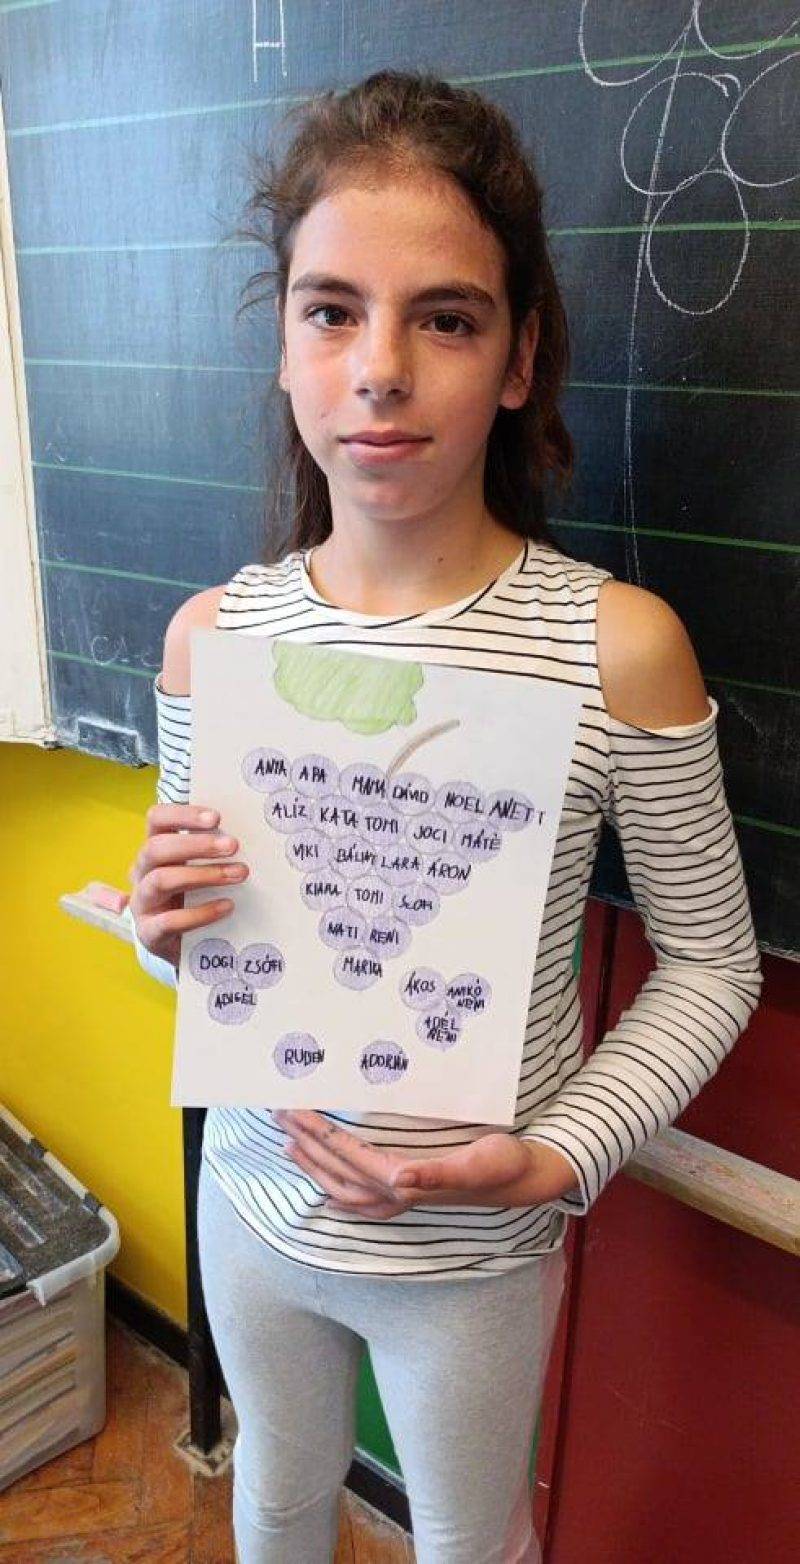 H
ANYA APA MAMA DÁVID NOEL ANETT
ALÍZ KATA TOMI JOCI MÁTÉ
VIKI BÁLINT LARA ÁRON
KIARA TOMI SZOFI
NATI RENI
MARIKA
DOGI ZSÓFI
ABIGÉL
ÁKOS ANIKÓ NÉNI
ADÉL NÉNI
RUBEN ADORJÁN